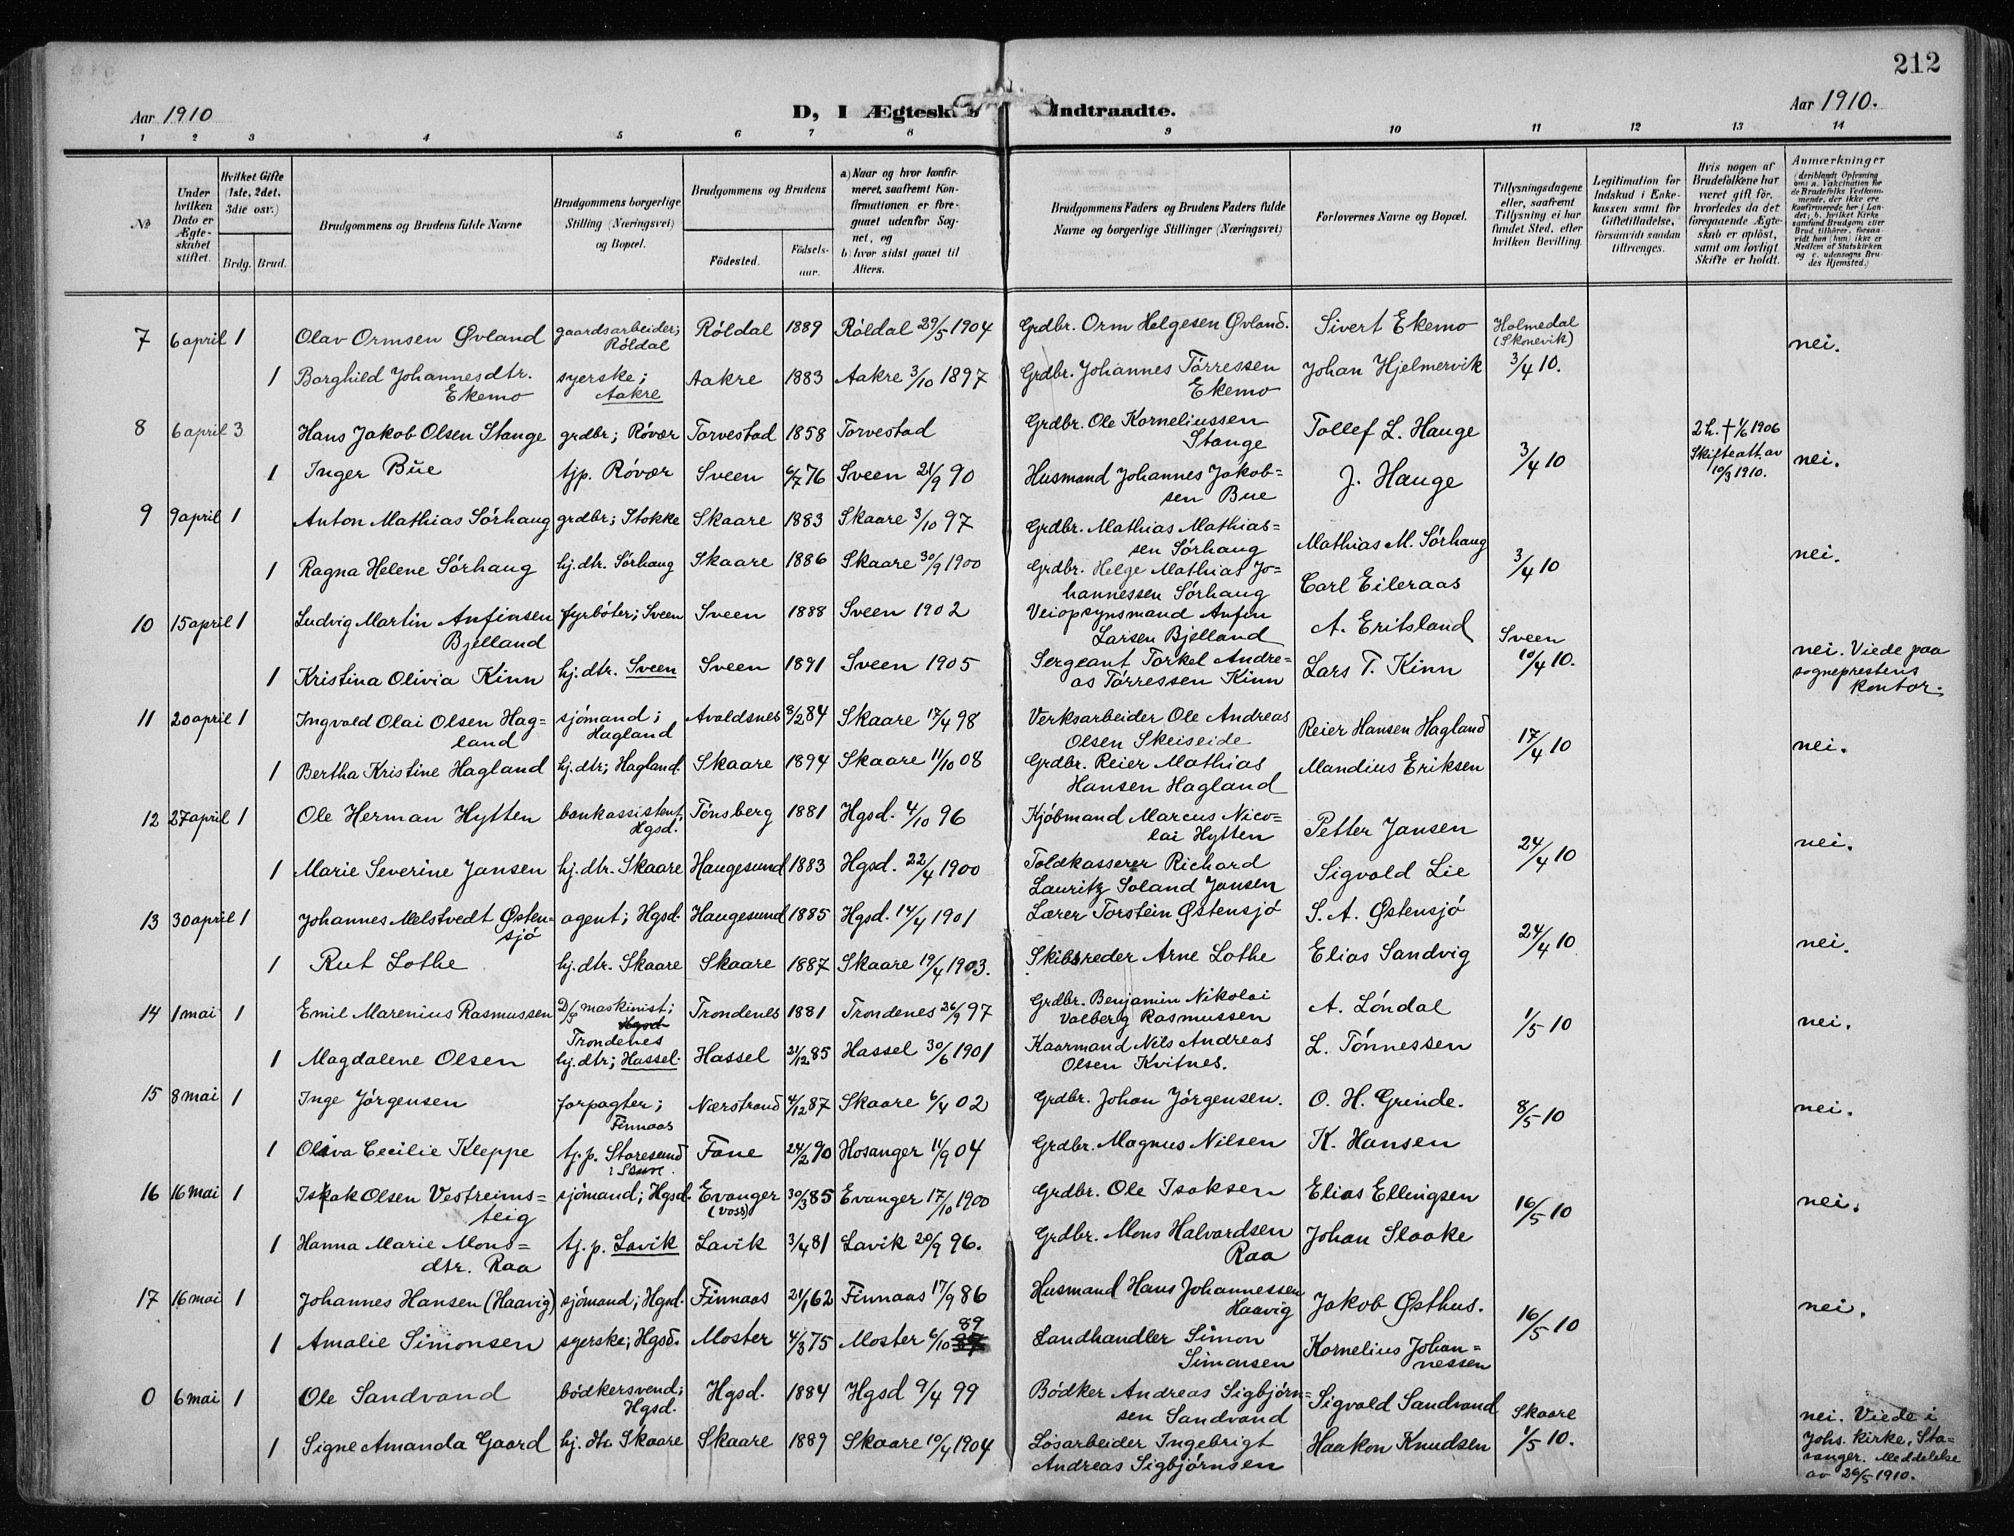 212
Aar 1910
D, I Ægtesk
Indtraadte.
Aar 1910.
1 2 3 4 5 6 7 8 9 10 11 12 13 14
№
Under hvilken Dato er Ægteskabet stiftet.
Hvilket Gifte (1ste, 2det, 3die osv.)
Brdg. Brud.
Brudgommens og Brudens fulde Navne
Brudgommens borgerlige Stilling (Næringsvei) og Bopæl.
Brudgommens og Brudens
Födested.
Födselsaar.
a) Naar og hvor konfirmeret, saafremt Konfirmationen er foregaaet udenfor Sognet, og
b) hvor sidst gaaet til Alters.
Brudgommens Faders og Brudens Faders fulde Navne og borgerlige Stillinger (Næringsvei)
Forlovernes Navne og Bopæl.
Tillysningsdagene eller, saafremt Tillysning ei har fundet Sted, efter hvilken Bevilling.
Legitimation for Indskud i Enkekassen samt for Giftetilladelse, forsaavidt saadan tiltrænges.
Hvis nogen af Brudefolkene har været gift før, hvorledes da det foregaaende Ægteskab er opløst, samt om lovligt Skifte er holdt.
Anmærkninger (deriblandt Oplysning om: a. Vaccination for de Brudefolks Vedkommende, der ikke ere konfirmerede her i Landet; b. hvilket Kirkesamfund Brudgom eller Brud tilhører, forsaavidt han (hun) ikke er Medlem af Statskirken og c. udensogns Brudes Hjemsted.)
7 6 april 1 Olav Ormsen Øvland gaardsarbeider; Röldal Röldal 1889 Röldal 29/5 1904 Grdbr. Orm Helgesen Øvland. Sivert Ekemo Holmedal (Skonevik) 3/4 10. nei.
1 Borghild Johannesdtr. Ekemo syerske; Aakre Aakre 1883 Aakre 3/10 1897 Grdbr. Johannes Törressen Ekemo Johan Hjelmervik
8 6 april 3 Hans Jakob Olsen Stange grdbr; Rövær Torvestad 1858 Torvestad Grdbr. Ole Korneliussen Stange Tollef L. Hauge 3/4 10 2 h. † 1/6 1906 Skifteatt. av 10/3 1910. nei.
1 Inger Bue tjp. Rövær Sveen 6/7 76 Sveen 21/9 90 Husmand Johannes Jakobsen Bue J. Hauge
9 9 april 1 Anton Mathias Sörhaug grdbr; Stokke Skaare 1883 Skaare 3/10 97 Grdbr. Mathias Mathiassen Sörhaug Mathias M. Sörhaug 3/4 10 nei.
1 Ragna Helene Sörhaug hj. dtr. Sörhaug Skaare 1886 Skaare 30/9 1900 Grdbr. Helge Mathias Johannessen Sörhaug Carl Eileraas
10 15 april 1 Ludvig Martin Anfinsen Bjelland fyrböter; Sveen Sveen 1888 Sveen 1902 Veiopsynsmand Anfin Larsen Bjelland A. Eritsland Sveen 10/4 10. nei. Viede paa sogneprestens kontor.
1 Kristina Olivia Kinn hj. dtr. Sveen Sveen 1891 Sveen 1905 Sergeant Torkel Andreas Törressen Kinn Lars T. Kinn
11 20 april 1 Ingvald Olai Olsen Hagland sjömand; Hagland Avaldsnes 8/2 84 Skaare 17/4 98 Verksarbeider Ole Andreas Olsen Skeiseide Reier Hansen Hagland 17/4 10 nei.
1 Bertha Kristine Hagland hj. dtr; Hagland. Skaare 1894 Skaare 11/10 08 Grdbr. Reier Mathias Hansen Hagland Mandius Eriksen
12 27 april 1 Ole Herman Hytten bankassistent, Hgsd. Tönsberg 1881 Hgsd. 4/10 96 Kjöbmand Marcus Nicolai Hytten Petter Jansen 24/4 10 nei.
1 Marie Severine Jansen hj. dtr. Skaare Haugesund 1883 Hgsd. 22/4 1900 Toldkasserer Richard Lauritz Soland Jansen Sigvald Lie
13 30 april 1 Johannes Melstvedt Østensjö agent; Hgsd. Haugesund 1885 Hgsd. 14/4 1901 Lærer Torstein Østensjö S. A. Østensjö 24/4 10 nei.
1 Rut Lothe hj. dtr. Skaare Skaare 1887 Skaare 19/4 1903. Skibsreder Arne Lothe Elias Sandvig
14 1 mai 1 Emil Marenius Rasmussen D/S maskinist; Hgsd Trondenes Trondenes 1881 Trondenes 26/9 97 Grdbr. Benjamin Nikolai Valberg Rasmussen A. Löndal 1/5 10 nei.
1 Magdalene Olsen hj. dtr; Hassel. Hassel 21/12 85 Hassel 30/6 1901 Kaarmand Nils Andreas Olsen Kvitnes. L. Tönnessen
15 8 mai 1 Inge Jörgensen forpagter; Finnaas Nærstrand 4/12 87 Skaare 6/4 02 Grdbr. Johan Jörgensen. O. H. Grinde. 8/5 10 nei.
1 Oliva Cecilie Kleppe tj. p. Storesund i Skaare. Fane 24/2 90 Hosanger 11/9 04 Grdbr. Magnus Nilsen K. Hansen
16 16 mai 1 Isak Olsen Vestreimsteig sjömand; Hgsd. Evanger (Voss) 30/3 85 Evanger 17/10 1900 Grdbr. Ole Isaksen Elias Ellingsen 16/5 10 nei.
1 Hanna Marie Monsdtr. Raa tj. p. Lavik Lavik 3/4 81 Lavik 20/9 96. Grdbr. Mons Halvardsen Raa Johan Slaake
17 16 mai 1 Johannes Hansen (Haavig) sjömand; Hgsd. Finnaas 21/1 62 Finnaas 17/9 86 Husmand Hans Johannessen Haavig Jakob Østhus. 16/5 10 nei.
1 Amalie Simonsen syerske; Hgsd. Moster 4/3 75 Moster 6/10 89 Landhandler Simon Simonsen Kornelius Johannessen
0 6 mai 1 Ole Sandvand bödkersvend; Hgsd. Hgsd. 1884 Hgsd 9/4 99 Bödker Andreas Sigbjörnsen Sandvand Sigvald Sandvand Skaare 1/5 10. nei. Viede i Johs. kirke, Stavanger. Meddelelse av 26/5 1910.
1 Signe Amanda Gaard hj. dtr Skaare Skaare 1889 Skaare 10/4 1904 Lösarbeider Ingebrigt Andreas Sigbjörnsen Haakon Knudsen